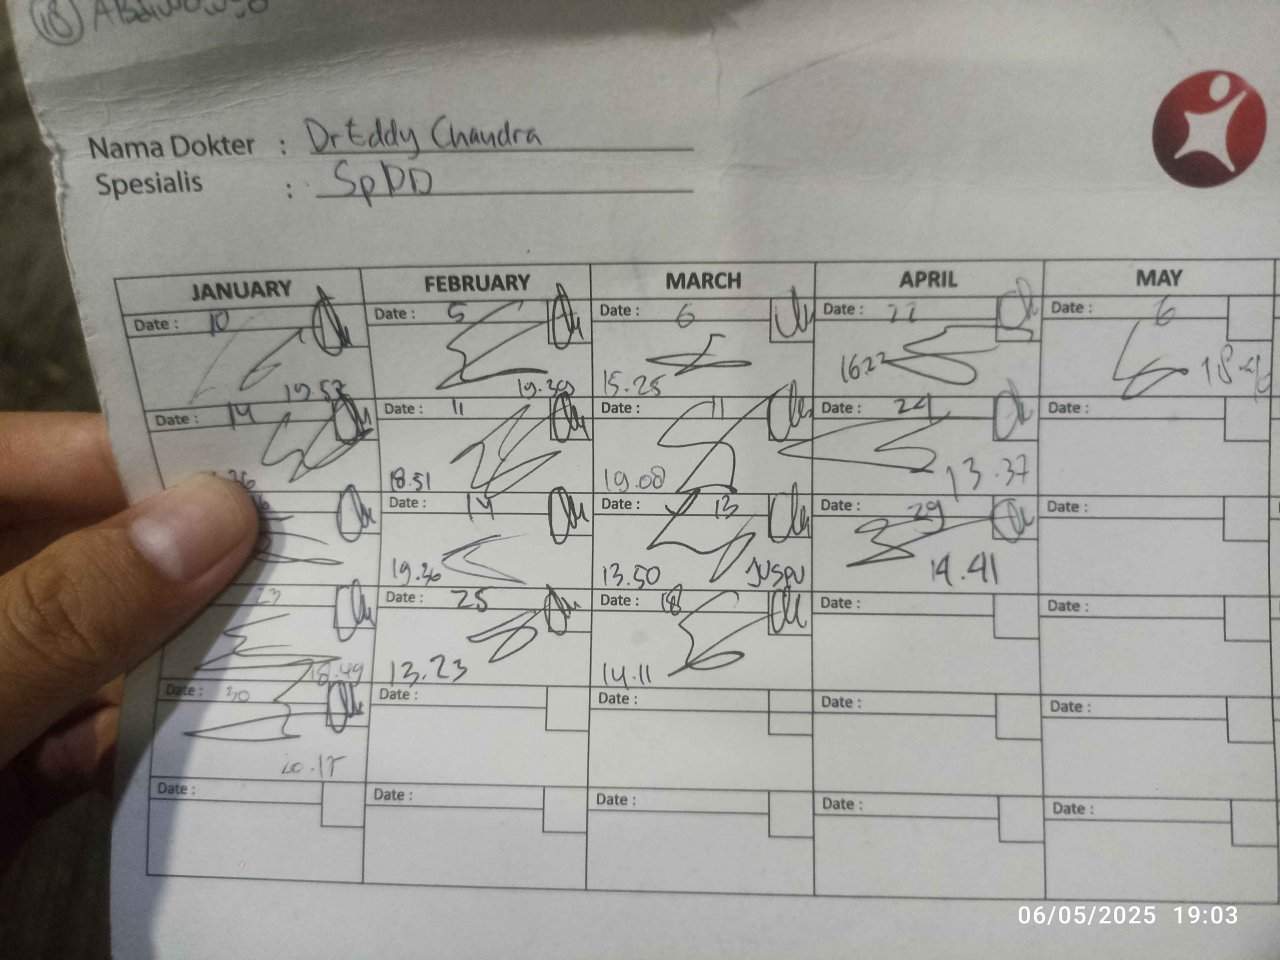 18
Nama Dokter : Dr Eddy Chandra
Spesialis : SpPD
JANUARY FEBRUARY MARCH APRIL MAY
Date : 10 Date : 5 Date : 6 Date : 22 Date : 6
19.57 19.30 15.25 1622 18
Date : 14 Date : 11 Date : 11 Date : 24 Date :
18.51 19.08 13.37
Date : 14 Date : 13 Date : 29 Date :
19.36 13.50 14.41
23 Date : 25 Date : 18 Date : Date :
18.49 13.23 14.11
Date : 30 Date : Date : Date : Date :
20.15
Date : Date : Date : Date : Date :
06/05/2025 19:03